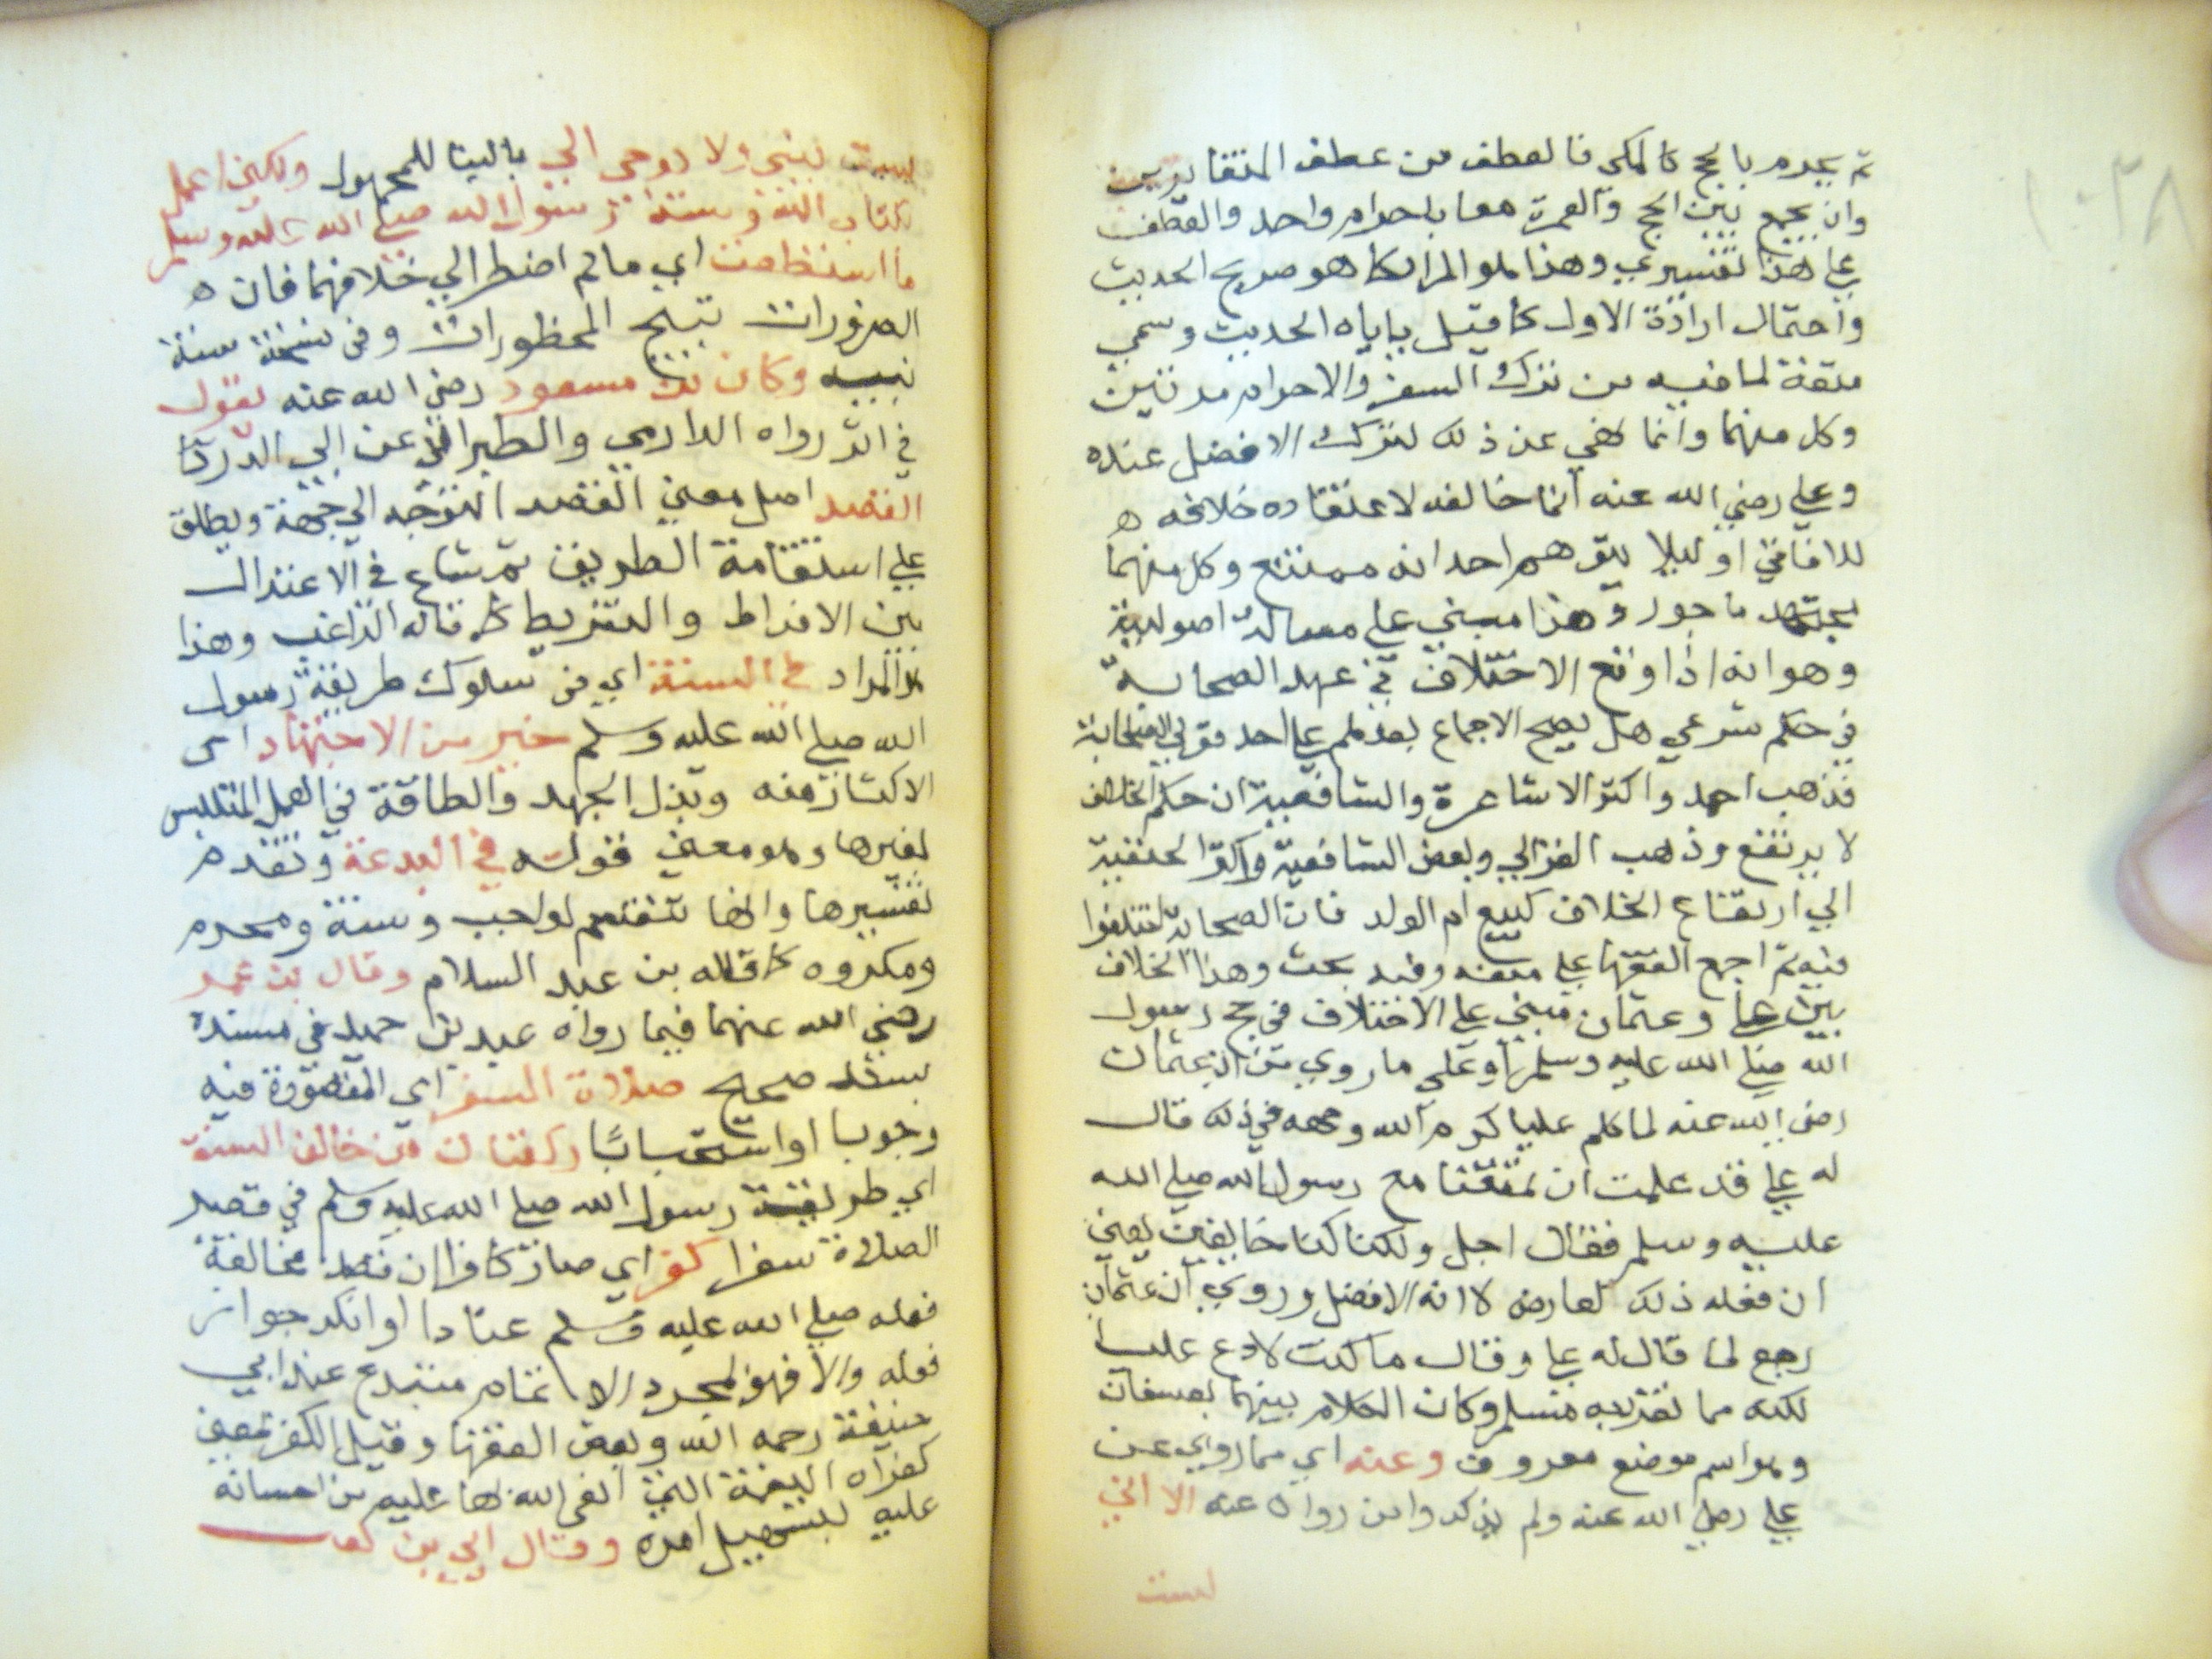 ثم يحرم بالحج كالمكي فالعطف من عطف المتغايرين
وان يجمع بين الحج والعمرة معا باحرام واحد والعطف
على هذا تفسيري وهذا هو المراد كما هو صريح الحديث
واحتمال ارادة الاول كما قيل ياباه الحديث وسمي
متعة لما فيه من ترك السفر والاحرام مرتين
وكل منهما وانما نهي عن ذلك لترك الافضل عنده
وعلي رضي الله عنه انما خالفه لاعتقاده خلافه ه
للافاقي او ليلا يتوهم احد انه ممتنع وكل منهما
مجتهد ماجور وهذا مبني على مسالة اصولية
وهو انه اذا وقع الاختلاف في عهد الصحابة
في حكم شرعي هل يصح الاجماع بعدهم على احد قولي الصحابة
فذهب احمد واكثر الاشاعرة والشافعية ان حكم الخلاف
لا يرتفع وذهب الغزالي وبعض الشافعية واكثر الحنفية
الي ارتفاع الخلاف كبيع ام الولد فان الصحابة اختلفوا
فيه ثم اجمع الفقها على منعه وفيه بحث وهذا الخلاف
بين على وعثمان مبني على الاختلاف في حج رسول
الله صلى الله عليه وسلم وعلي ما روي من ان عثمان
رضي الله عنه لما كلم عليا كرم الله وجهه في ذلك قال
له على قد علمت ان تمتعنا مع رسول الله صلى الله
عليه وسلم فقال اجل ولكنا كنا خايفين يعني
ان فعله ذلك لعارض لا انه الافضل وروي ان عثمان
رجع لما قال له على وقال ما كنت لادع عليا
لكنه مما تفرد به مسلم وكان الكلام بينهما بعسفان
وهو اسم موضع معروف وعنه اي مما روي عن
علي رضي الله عنه ولم يذكروا من رواه عنه الا اني
لست
لست بنبي ولا يوحى الي بالبنا للمجهول ولكني اعمل
بكتاب الله وسنة رسول الله صلى الله عليه وسلم
ما استطعت اي ما لم اضطر الي خلافهما فان ه
الضرورات تبيح المحظورات وفي نسخة سنة
نبيه وكان بن مسعود رضي الله عنه يقول
في اثر رواه الدارمي والطبراني عن ابي الدردا
القصد اصل معني القصد التوجه الي جهة ويطلق
علي استقامة الطريق ثم شاع في الاعتدال
بين الافراط والتفريط كما قاله الراغب وهذا
هو المراد في السنة اي في سلوك طريقة رسول
الله صلى الله عليه وسلم خير من الاجتهاد اي
الاكثار منه وبذل الجهد والطاقة في العمل المتلبس
بغيرها وهو معني قوله في البدعة وتقدم
تفسيرها وانها تنقسم لواجب وسنة ومحرم
ومكروه كما قاله بن عبد السلام وقال بن عمر
رضي الله عنهما فيما رواه عبد بن حميد في مسنده
بسند صحيح صلاة السفر اي المقصورة فيه
وجوبا او استحبابًا ركعتان من خالف السنة
اي طريقة رسول الله صلى الله عليه وسلم في قصر
الصلاة سفرا كفر اي صار كافرا ان قصد مخالفة
فعله صلى الله عليه وسلم عنادا او انكر جواز
فعله والا فهو لمجرد الاتمام مبتدع عند ابي
حنيفة رحمه الله وبعض الفقها وقيل الكفر بمعني
كفران النعمة التي انعم الله بها عليه من احسانه
عليه بتسهيل امره وقال ابي بن كعب